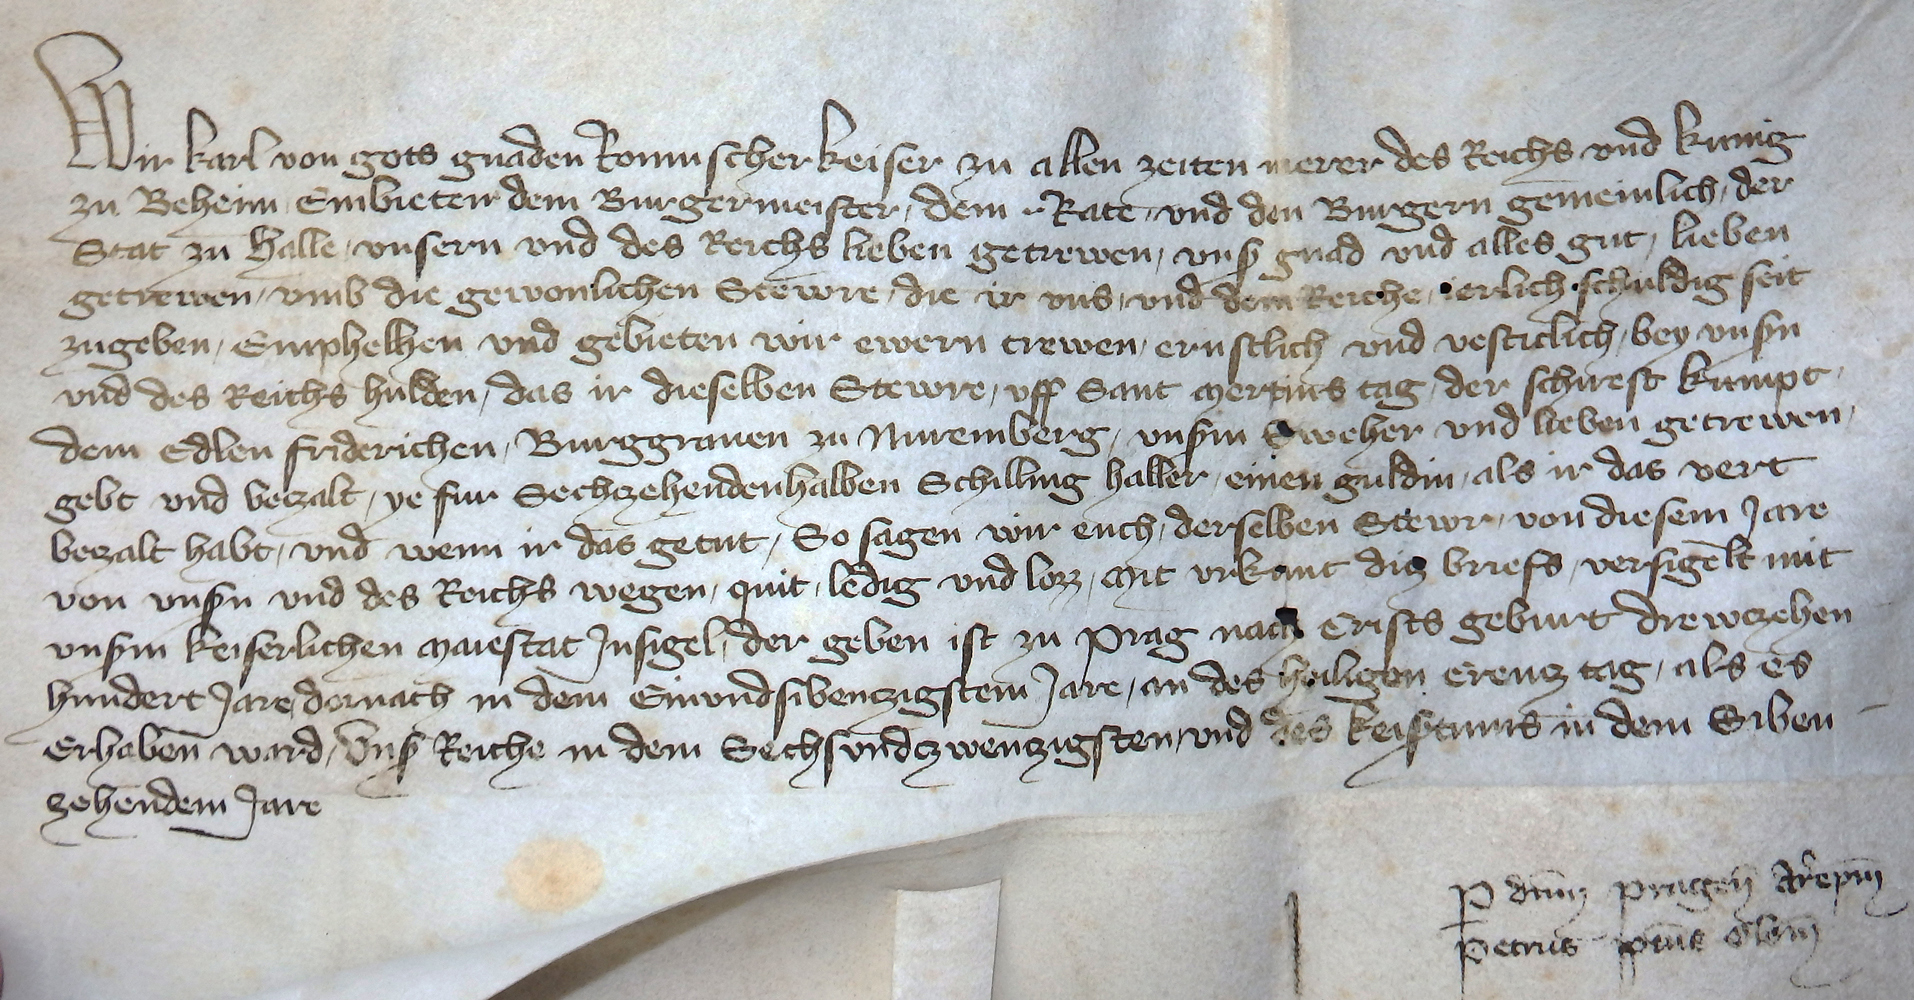 Wir karl von gots gnaden Romischer keiser zu allen zeiten merer des Reichs vnd kunig
zu Beheim Embieten dem Burgermeister, dem Rate, vnd den Burgern gemeinlich, der
Stat zu Halle, vnsern vnd des Reichs lieben getrewen, vnß gnad vnd alles gut, lieben
getrewen, vmb die gewonlichen Stewre, die ir vns, vnd dem Reiche, ierlich schuldig seit
zugeben, Emphelhen vnd gebieten wir ewern trewen, ernstlich vnd vesticlich, bey vnßn
vnd des Reichs hulden, das ir dieselben Stewre, vff Sant mertins tag, der schirest kumpt,
dem Edlen friderichen, Burggrauen zu Nuremberg, vnßm Sweher vnd lieben getrewen,
gebt vnd betzalt, ye fur Sechzehendenhalben Schilling haller, einen guldin, als ir das vert
betzalt habt, vnd wenn ir das getut, So sagen wir euch, derselben Stewr, von diesem Jare
von vnßn vnd des Reichs wegen, quit, ledig vnd lozz, Mit vrkunt ditz briefs, versigelt mit
vnßm keiserlichen Maiestat Insigel, der geben ist zu Prag nach Crists geburt drewczehen
hundert Jare dornach in dem Einvndsibentzigstem Jare, an des heiligen Creutz tag, als es
Erhaben ward, Vnß Reiche in dem Sechsvndczwentzigsten, vnd des keißtums in dem Siben
zehendem Jare
P dnm Pragen Arepm
Petrus Olom